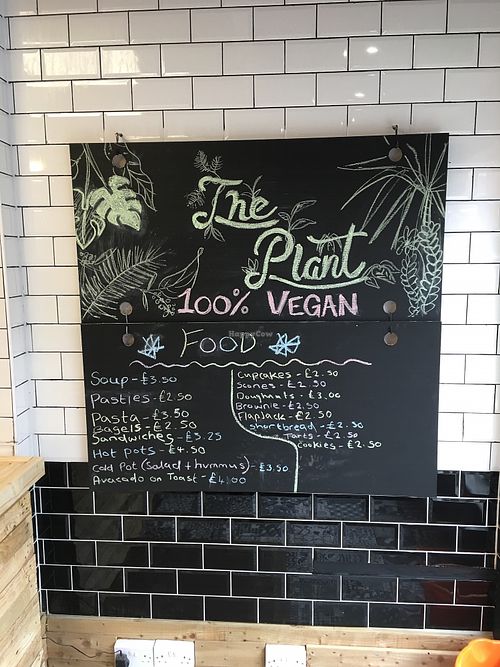 The
Plant
100% VEGAN
HappyCow
FOOD
Soup - £3.50
Pasties - £2.50
Pasta - £3.50
Bagels - £2.50
Sandwiches - £3.25
Hot Pots - £4.50
Cold Pot (Salad + hummus) - £3.50
Avocado on Toast - £4.00
Cupcakes - £2.50
Scones - £2.50
Doughnuts - £3.00
Brownie - £2.50
Flapjack - £2.50
Shortbread - £2.50
Tarts - £2.50
Cookies - £2.50